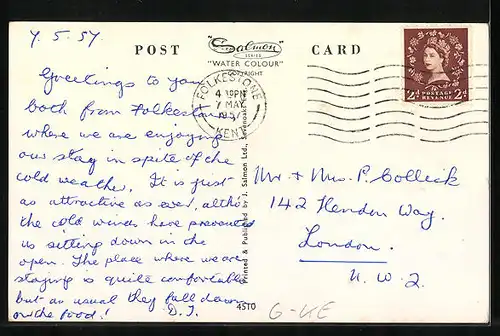 7.5.57
POST CARD
Salmon
SERIES
"WATER COLOUR"
COPYRIGHT
FOLKESTONE
4 PM
7 MAY
1957
KENT
2d POSTAGE REVENUE 2d
Greetings to you
both from Folkestone
where we are enjoying
our stay in spite of the
cold weather. It is just
as attractive as ever, altho
the cold winds have prevented
us sitting down in the
open. The place where we are
staying is quite comfortable
but as usual they fall down
on the food! D.J.
Printed & Published by J. Salmon Ltd., Sevenoaks
Mr & Mrs. P. Collick
142 Hendon Way.
London.
N.W.2.
4510
G-KE